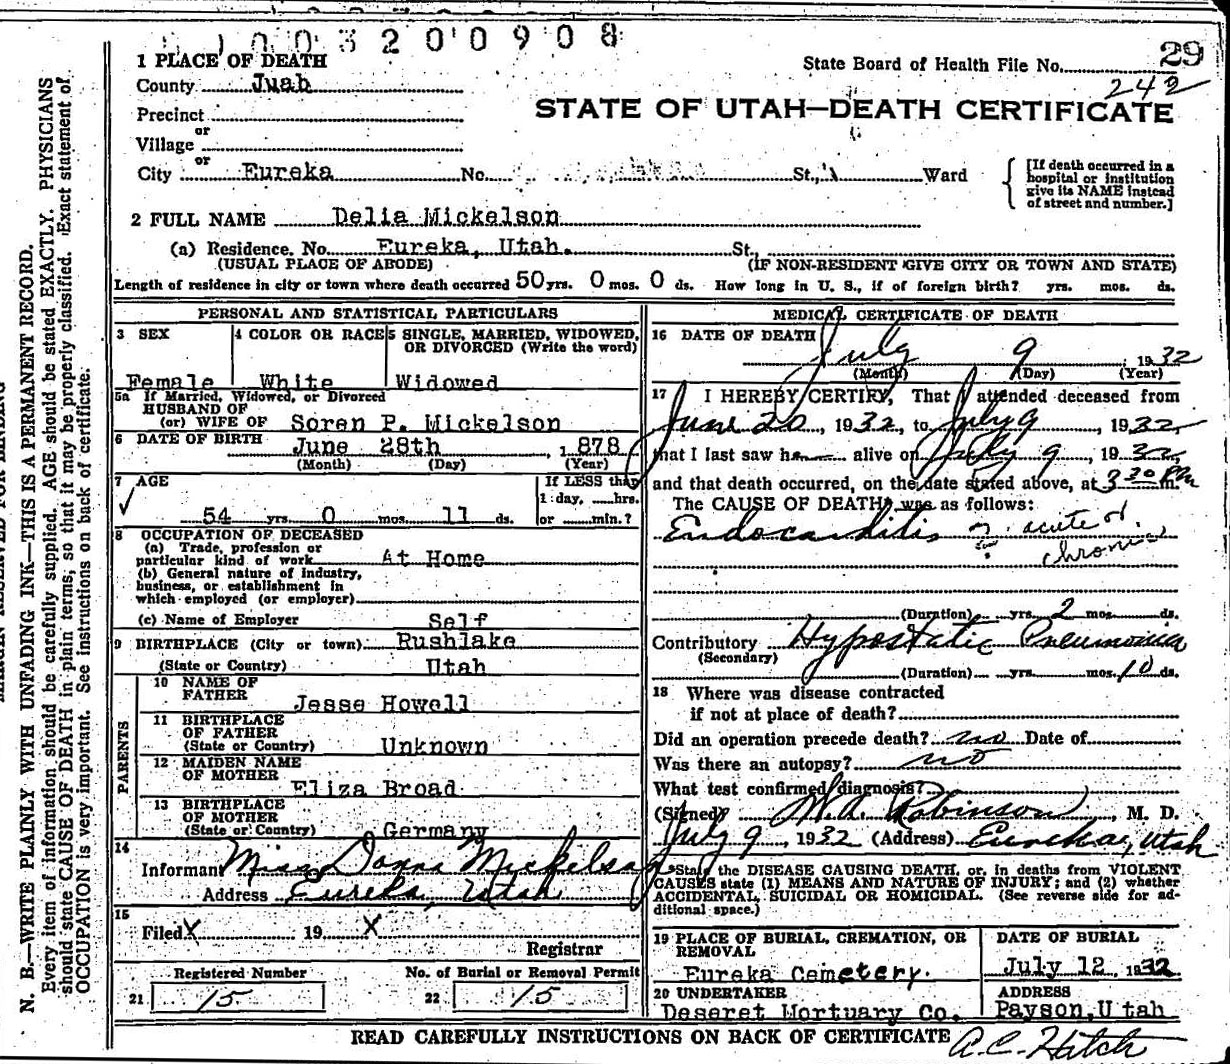 1003200908
29
1 PLACE OF DEATH
State Board of Health File No.
242
County Juab
STATE OF UTAH—DEATH CERTIFICATE
Precinct
or
Village
or
City Eureka No. St., Ward
[If death occurred in a hospital or institution give its NAME instead of street and number.]
2 FULL NAME Delia Mickelson
(a) Residence. No. Eureka, Utah. St.
(USUAL PLACE OF ABODE) (IF NON-RESIDENT GIVE CITY OR TOWN AND STATE)
Length of residence in city or town where death occurred 50 yrs. 0 mos. 0 ds. How long in U. S., if of foreign birth? yrs. mos. ds.
PERSONAL AND STATISTICAL PARTICULARS
3 SEX
Female
4 COLOR OR RACE
White
5 SINGLE, MARRIED, WIDOWED,
OR DIVORCED (Write the word)
Widowed
5a If Married, Widowed, or Divorced
HUSBAND OF
(or) WIFE OF Soren P. Mickelson
6 DATE OF BIRTH June 28th , 1878
(Month) (Day) (Year)
7 AGE
54 yrs. 0 mos. 11 ds.
If LESS than
1 day, hrs.
or min.?
8 OCCUPATION OF DECEASED
(a) Trade, profession or
particular kind of work At Home
(b) General nature of industry,
business, or establishment in
which employed (or employer)
(c) Name of Employer Self
9 BIRTHPLACE (City or town) Rushlake
(State or Country) Utah
PARENTS
10 NAME OF
FATHER Jesse Howell
11 BIRTHPLACE
OF FATHER
(State or Country) Unknown
12 MAIDEN NAME
OF MOTHER
Eliza Broad
13 BIRTHPLACE
OF MOTHER
(State or Country) Germany
14
Informant Miss Donna Mickelson
Address Eureka, Utah
15
Filed X 19 X
Registrar
Registered Number
21 15
No. of Burial or Removal Permit
22 15
MEDICAL CERTIFICATE OF DEATH
16 DATE OF DEATH July 9 , 1932
(Month) (Day) (Year)
17 I HEREBY CERTIFY, That I attended deceased from
June 20, 1932, to July 9, 1932,
that I last saw h alive on July 9, 1932
and that death occurred, on the date stated above, at 3 30 P m.
The CAUSE OF DEATH was as follows:
Endocarditis ? acute or
chronic
(Duration) yrs. 2 mos. ds.
Contributory Hypostatic Pneumonia
(Secondary)
(Duration) yrs. mos. 10 ds.
18 Where was disease contracted
if not at place of death?
Did an operation precede death? no Date of
Was there an autopsy? no
What test confirmed diagnosis?
(Signed) W. A. Robinson, M. D.
July 9, 1932 (Address) Eureka, Utah
*State the DISEASE CAUSING DEATH, or, in deaths from VIOLENT
CAUSES state (1) MEANS AND NATURE OF INJURY; and (2) whether
ACCIDENTAL, SUICIDAL OR HOMICIDAL. (See reverse side for ad-
ditional space.)
19 PLACE OF BURIAL, CREMATION, OR
REMOVAL
Eureka Cemetery.
DATE OF BURIAL
July 12, 1932
20 UNDERTAKER
Deseret Mortuary Co.
ADDRESS
Payson, Utah
READ CAREFULLY INSTRUCTIONS ON BACK OF CERTIFICATE
A.C. Hitch
N. B.—WRITE PLAINLY WITH UNFADING INK—THIS IS A PERMANENT RECORD.
Every item of information should be carefully supplied. AGE should be stated EXACTLY. PHYSICIANS
should state CAUSE OF DEATH in plain terms, so that it may be properly classified. Exact statement of
OCCUPATION is very important. See instructions on back of certificate.